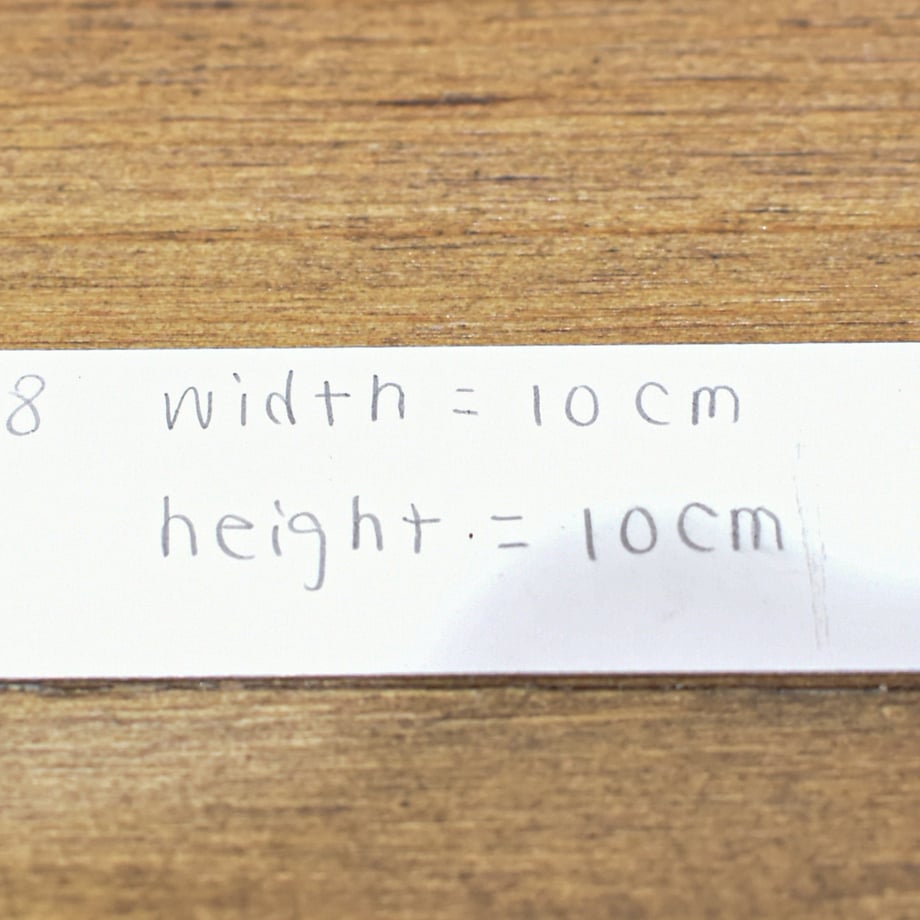 8 width = 10 cm
height = 10cm